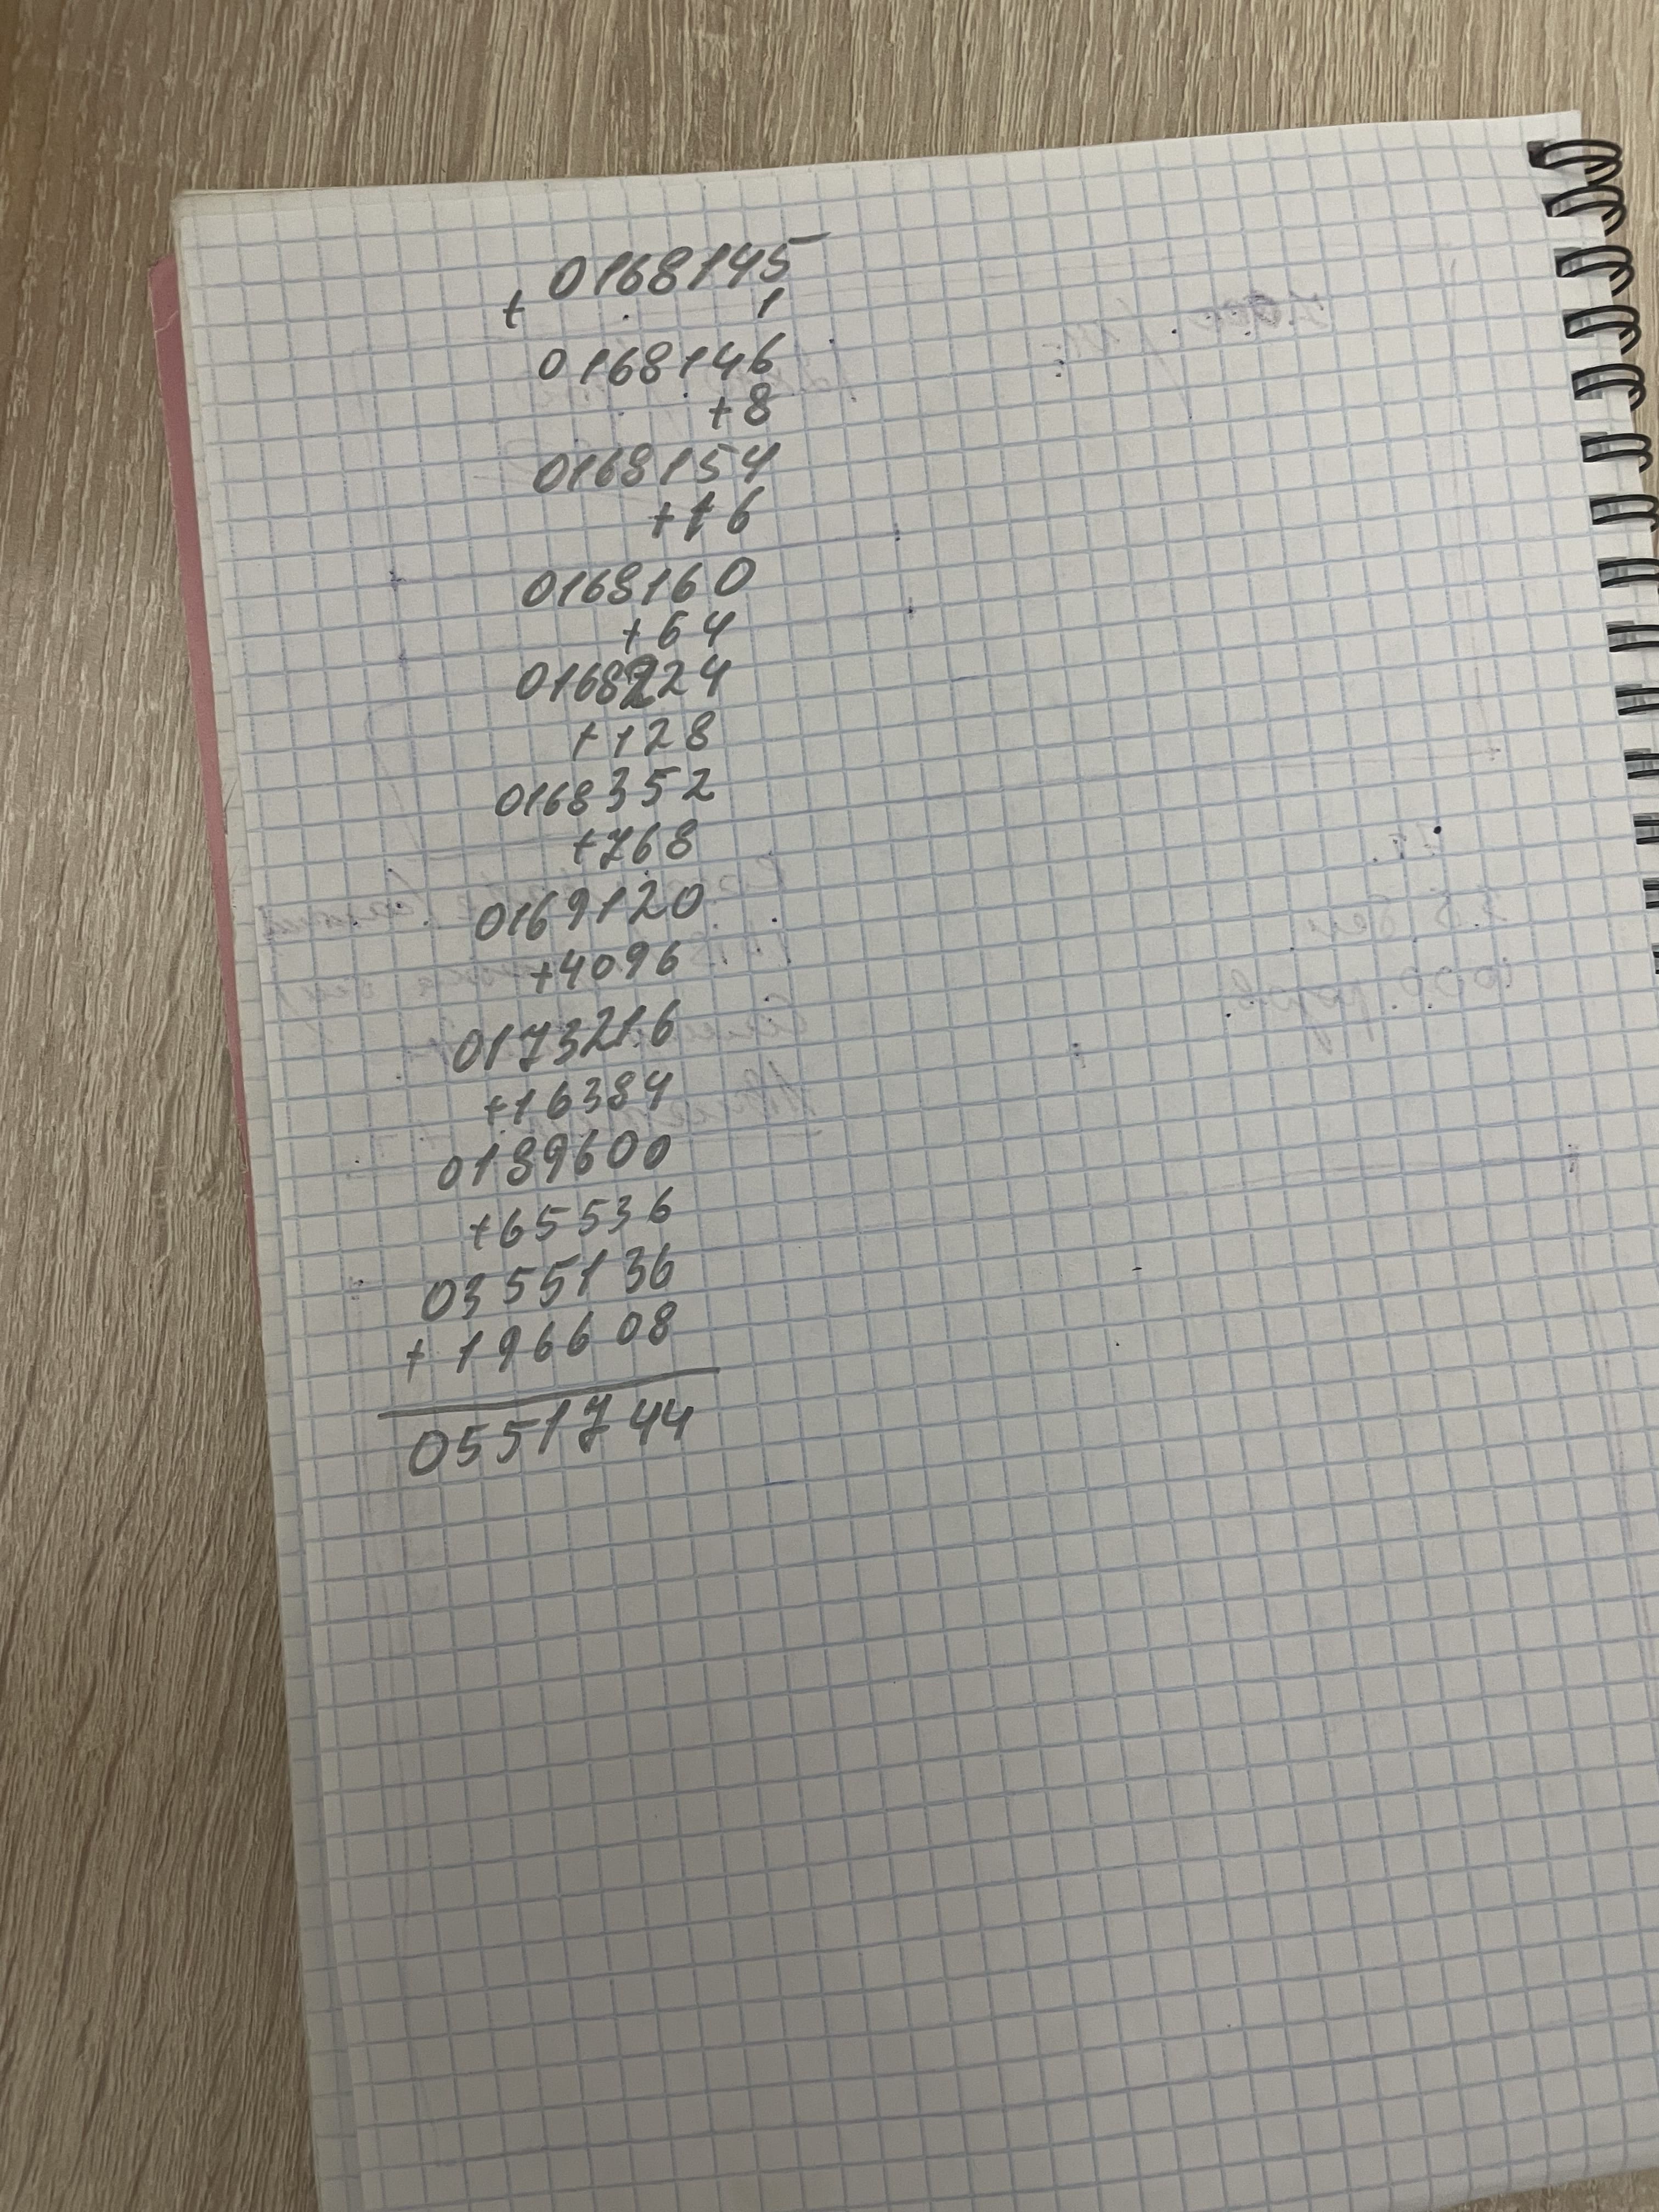 0168145
+ 1
0168146
+8
0168154
+16
0168160
+64
0168224
+128
0168352
+768
0169120
+4096
0173216
+16384
0189600
+65536
0355136
+ 196608
0551744